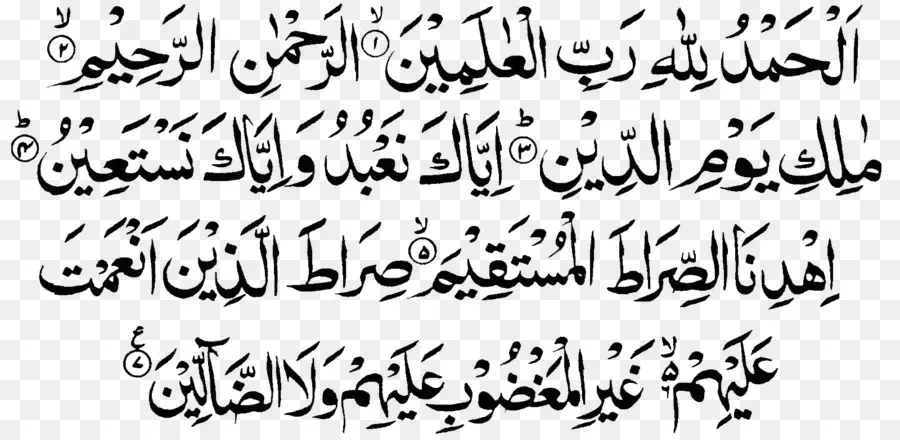 اَلْحَمْدُ لِلّٰهِ رَبِّ الْعٰلَمِیْنَ ۙ﴿۱﴾ الرَّحْمٰنِ الرَّحِیْمِ ۙ﴿۲﴾
مٰلِكِ یَوْمِ الدِّیْنِ ؕ﴿۳﴾ اِیَّاكَ نَعْبُدُ وَ اِیَّاكَ نَسْتَعِیْنُ ؕ﴿۴﴾
اِهْدِنَا الصِّرَاطَ الْمُسْتَقِیْمَ ۙ﴿۵﴾ صِرَاطَ الَّذِیْنَ اَنْعَمْتَ
عَلَیْهِمْ ۙ۬ غَیْرِ الْمَغْضُوْبِ عَلَیْهِمْ وَلَا الضَّآلِّیْنَ ﴿۷﴾ع